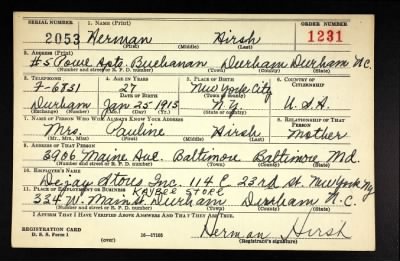 SERIAL NUMBER 1. NAME (Print) ORDER NUMBER
2053 Herman Hirsh 1231
(First) (Middle) (Last)
2. ADDRESS (Print)
#5 Powe Apts. Buchanan Durham Durham N.C.
(Number and street or R. F. D. number) (Town) (County) (State)
3. TELEPHONE 4. AGE IN YEARS 5. PLACE OF BIRTH 6. COUNTRY OF CITIZENSHIP
F-6851 27 New York City
DATE OF BIRTH (Town or county)
Durham Jan 25 1915 N.Y. U.S.A.
(Exchange) (Number) (Mo.) (Day) (Yr.) (State or country)
7. NAME OF PERSON WHO WILL ALWAYS KNOW YOUR ADDRESS 8. RELATIONSHIP OF THAT PERSON
Mrs. Pauline Hirsh Mother
(Mr., Mrs., Miss) (First) (Middle) (Last)
9. ADDRESS OF THAT PERSON
3906 Maine Ave. Baltimore Baltimore Md.
(Number and street or R. F. D. number) (Town) (County) (State)
10. EMPLOYER'S NAME
Dejay Stores Inc. 114 E. 23rd St. New York Ny
11. PLACE OF EMPLOYMENT OR BUSINESS KAYBEE STORE
334 W. Main St. Durham Durham N.C.
(Number and street or R. F. D. number) (Town) (County) (State)
I AFFIRM THAT I HAVE VERIFIED ABOVE ANSWERS AND THAT THEY ARE TRUE.
REGISTRATION CARD
D. S. S. Form 1 16—17105 Herman Hirsh
(over) (Registrant's signature)